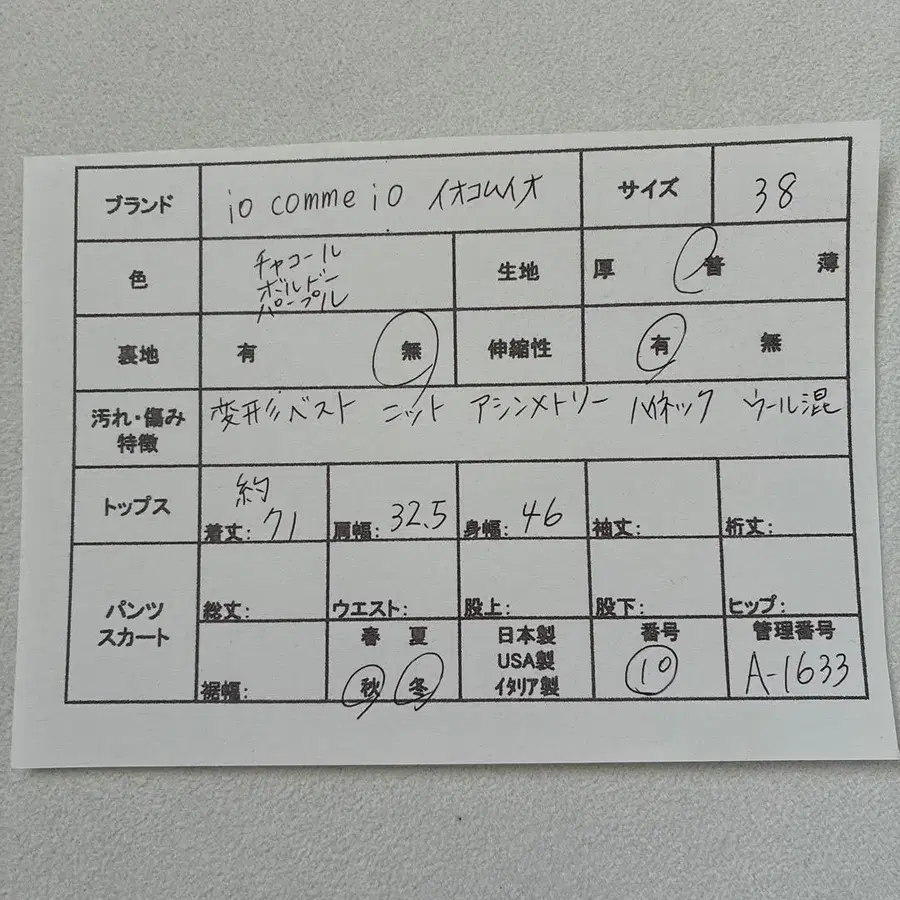 ブランド io comme io イオコムイオ サイズ 38
色 チャコール ボルドー パープル 生地 厚 普 薄
裏地 有 無 伸縮性 有 無
汚れ・傷み 特徴 変形ベスト ニット アシンメトリー ハイネック ウール混
トップス 着丈: 約71 肩幅: 32.5 身幅: 46 袖丈: 裄丈:
パンツ スカート 総丈: ウエスト: 股上: 股下: ヒップ:
裾幅: 春 夏 秋 冬 日本製 USA製 イタリア製 番号 10 管理番号 A-1633